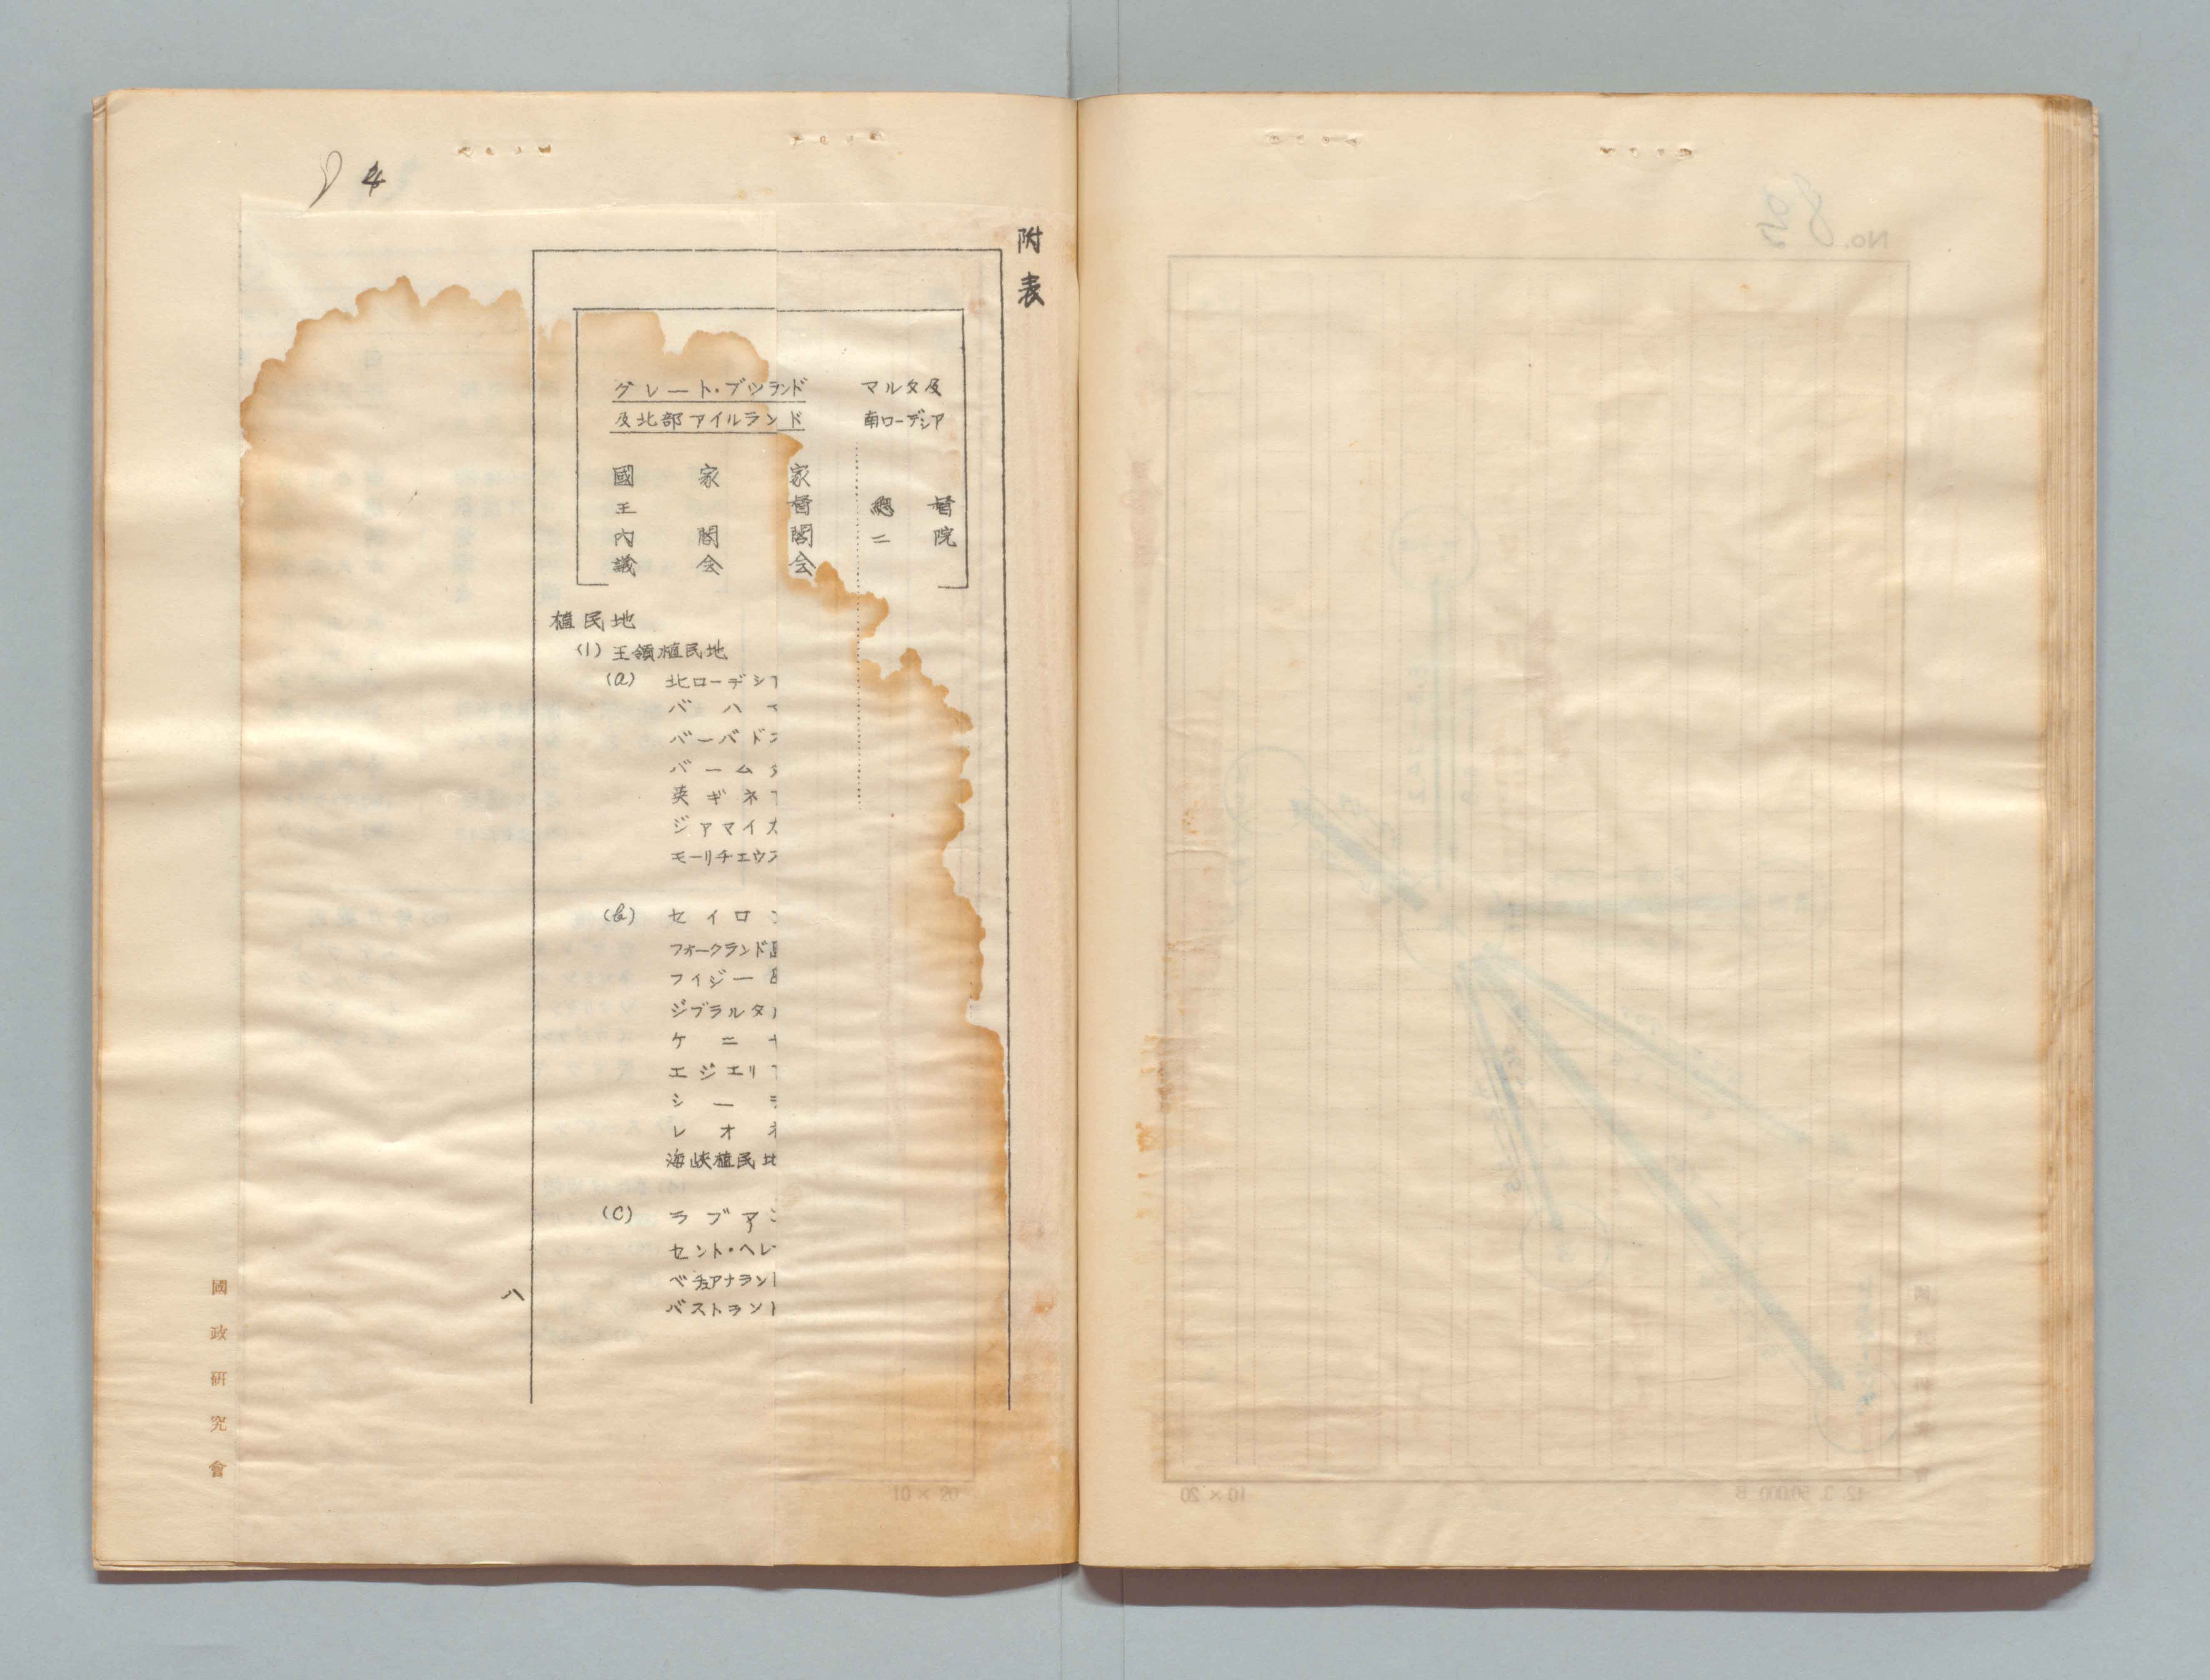 附表
グレート・ブリランド マルタ及
及北部アイルランド 南ローデシア
國 家 家
王 督 總 督
内 閣 閣 二 院
議 会 会
植民地
(1) 王領植民地
(a) 北ローデシア
バハマ
バーバドス
バームダ
英ギネア
ジァマイカ
モーリチエウス
(b) セイロン
フォークランド島
フィジー島
ジブラルタル
ケニヤ
エジエリア
シーラ
レオネ
海峡植民地
(C) ラブアン
セント・ヘレ
ベチュアナランド
バストランド
八
國政研究會
10 × 20
No. 8
10 × 20
12. 3. 50,000 B